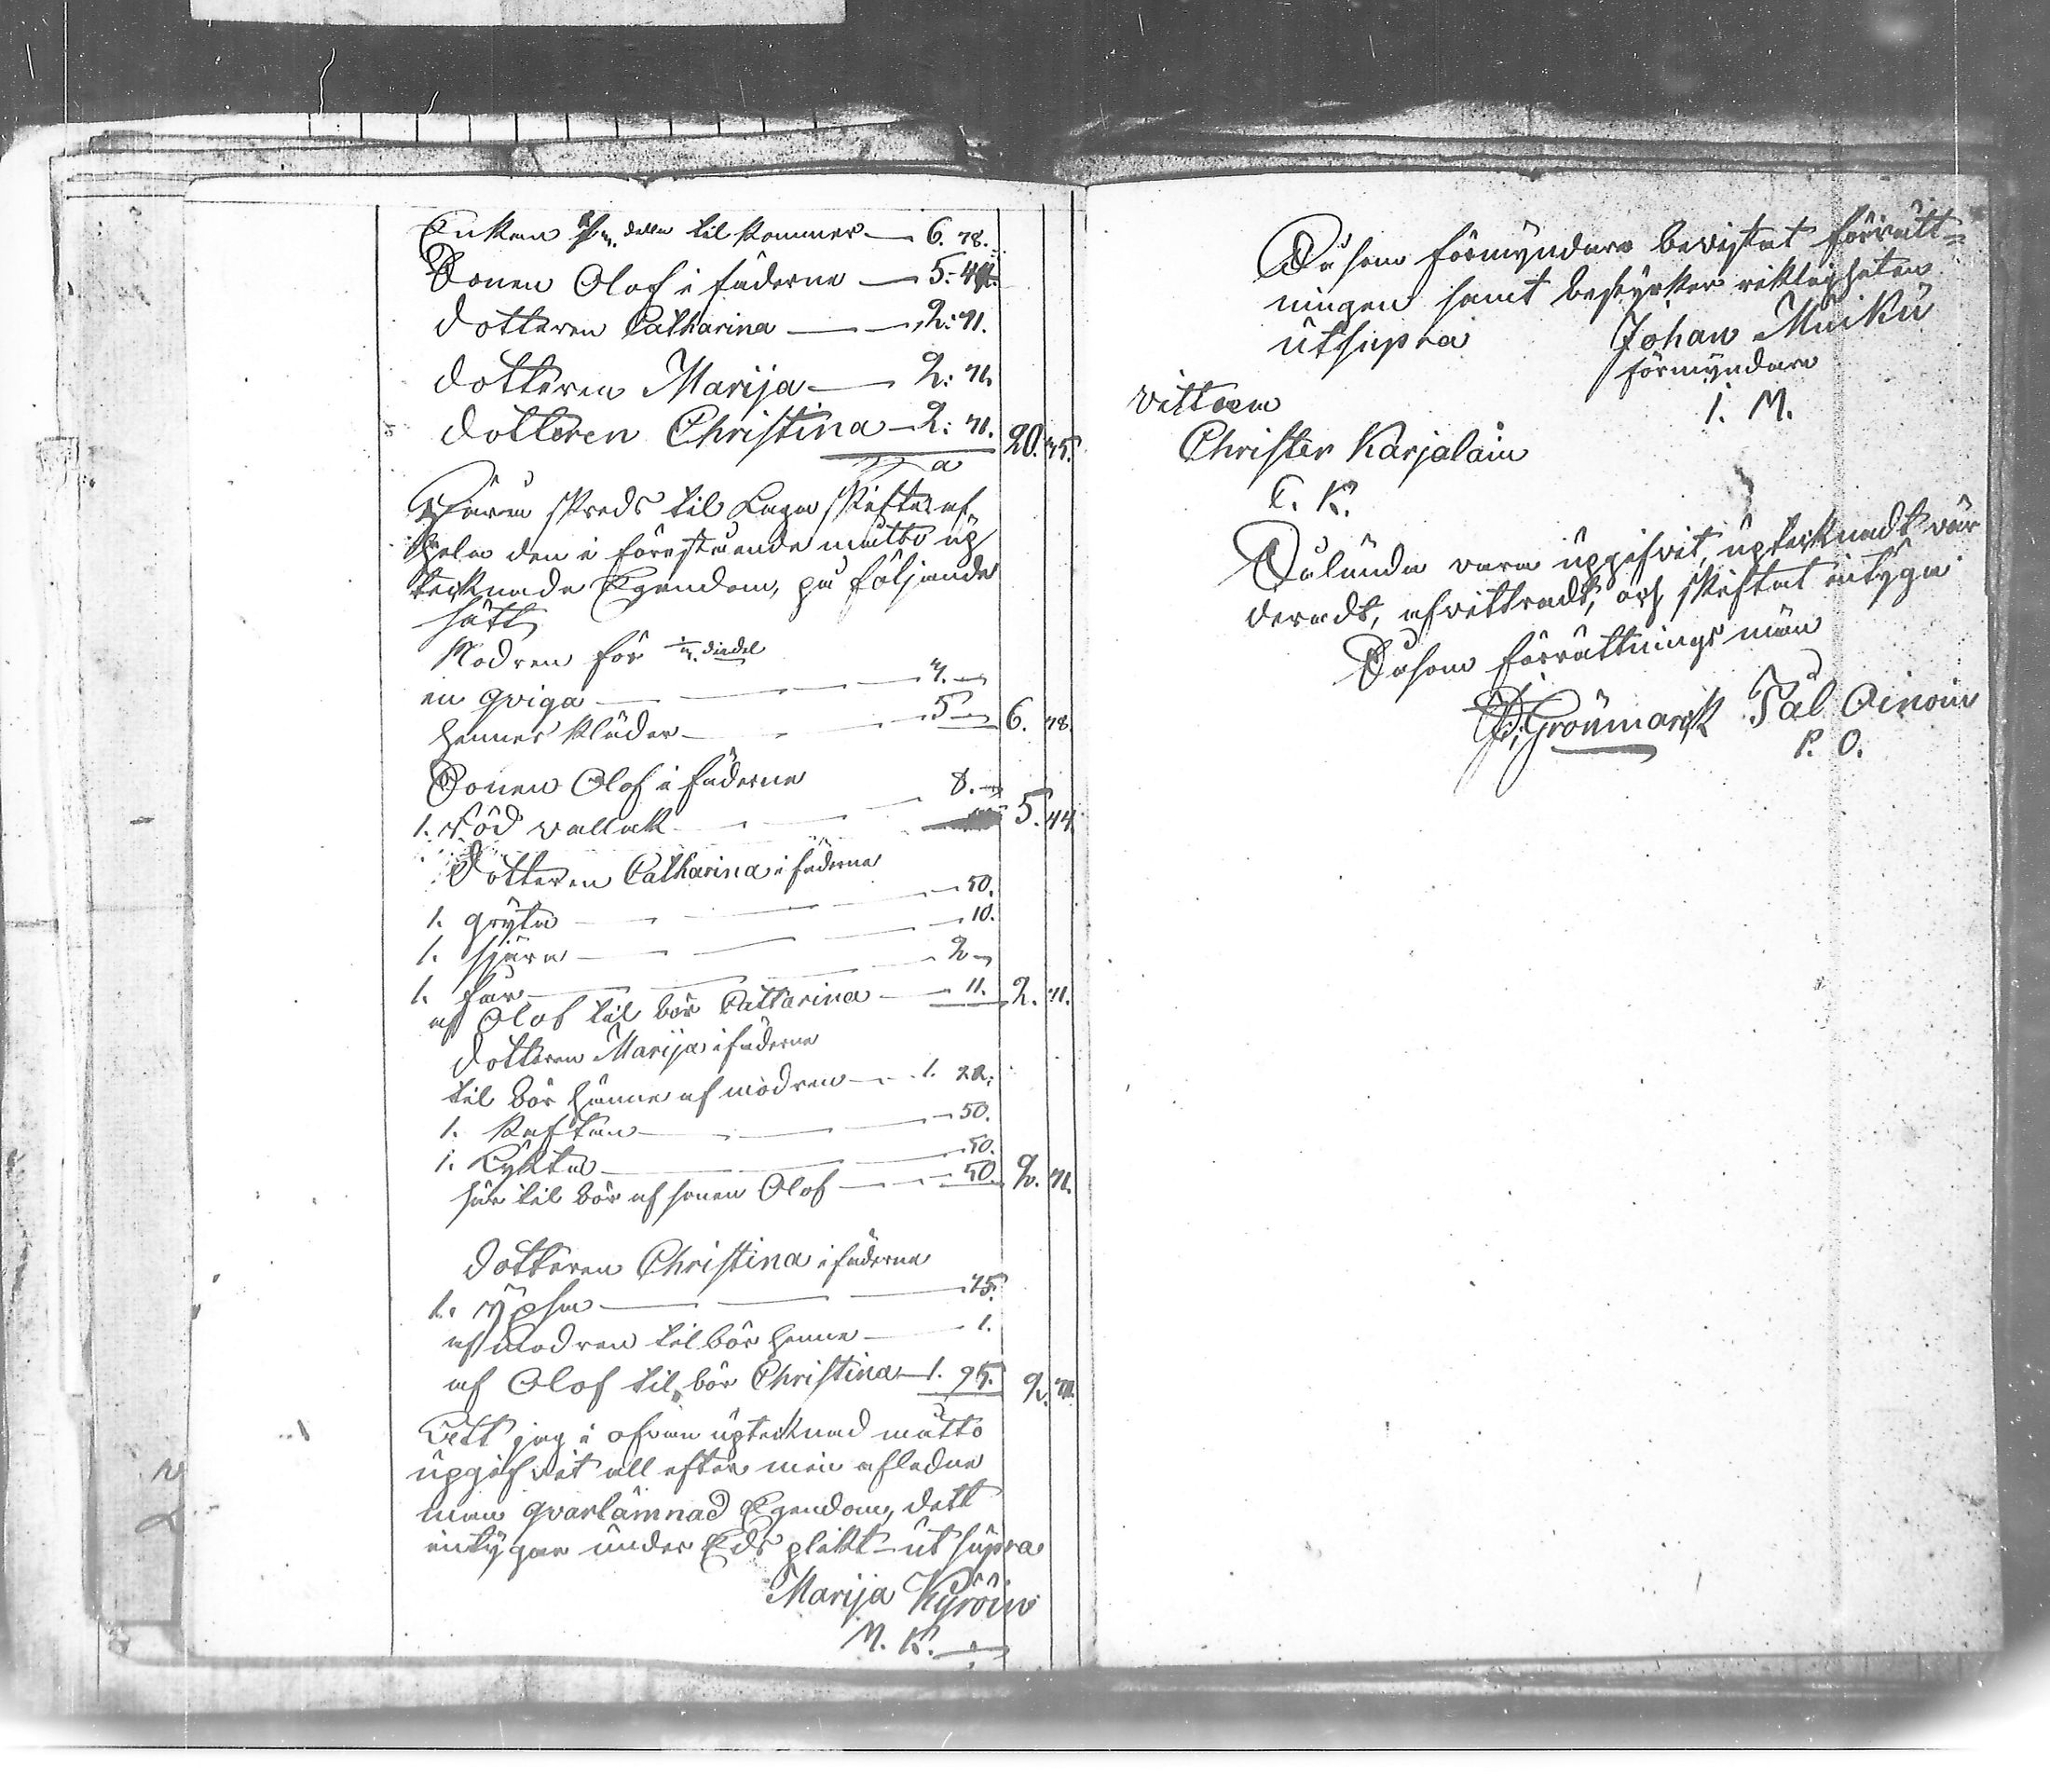 Enkan delen til kommer — 6. 78.
Sonen Olof i fäderne — 5: 44.
dotteren Catharina — 2: 71.
dotteren Marija — 2: 71.
dotteren Christina — 2: 71. 20. 75.
skreds til Laga skifte af
hela den i förestående måtto up
tecknade Egendom, på följande
sätt
Modren för
en qviga — 7. —
hennes kläder — 5 — 6. 78.
Sonen Olof i fäderne
1. röd vallak — 8. — 5. 44.
Dotteren Catharina i fäderne
1. gryta — 50.
1. skjära — 10.
1. får — 2 —
af Olof til bör Cattarina — 11. 2. 71.
dotteren Marija i fäderne
til bör henne af modren — 1. 21.
1. kaftan — 50.
1. Lykta — 50.
här til bör af sonen Olof — 50. 2. 71.
dotteren Christina i fäderne
1. — 75.
af modren til bör henne — 1.
af Olof til bör Christina — 1. 95. 2. 71.
Att jag i ofvan uptecknad måtto
upgifvit all efter min afledne
man qvarlämnad Egendom, dett
intygar under Eds plikt ut supra
Marija Kyröin
M. K.
Såsom förmyndare bevistat förrätt=
ningen samt bestyrker riktigheten
ut supra Johan Muikü
förmyndare
J. M.
vittnem
Christer Karjalain
C. K.
Sålunda vara uppgifvit, uptecknadt vär
deradt, afvittradt, och skiftat intyga
Såsom förrättnings män
Grönmarck Pål Oinoin
P. O.